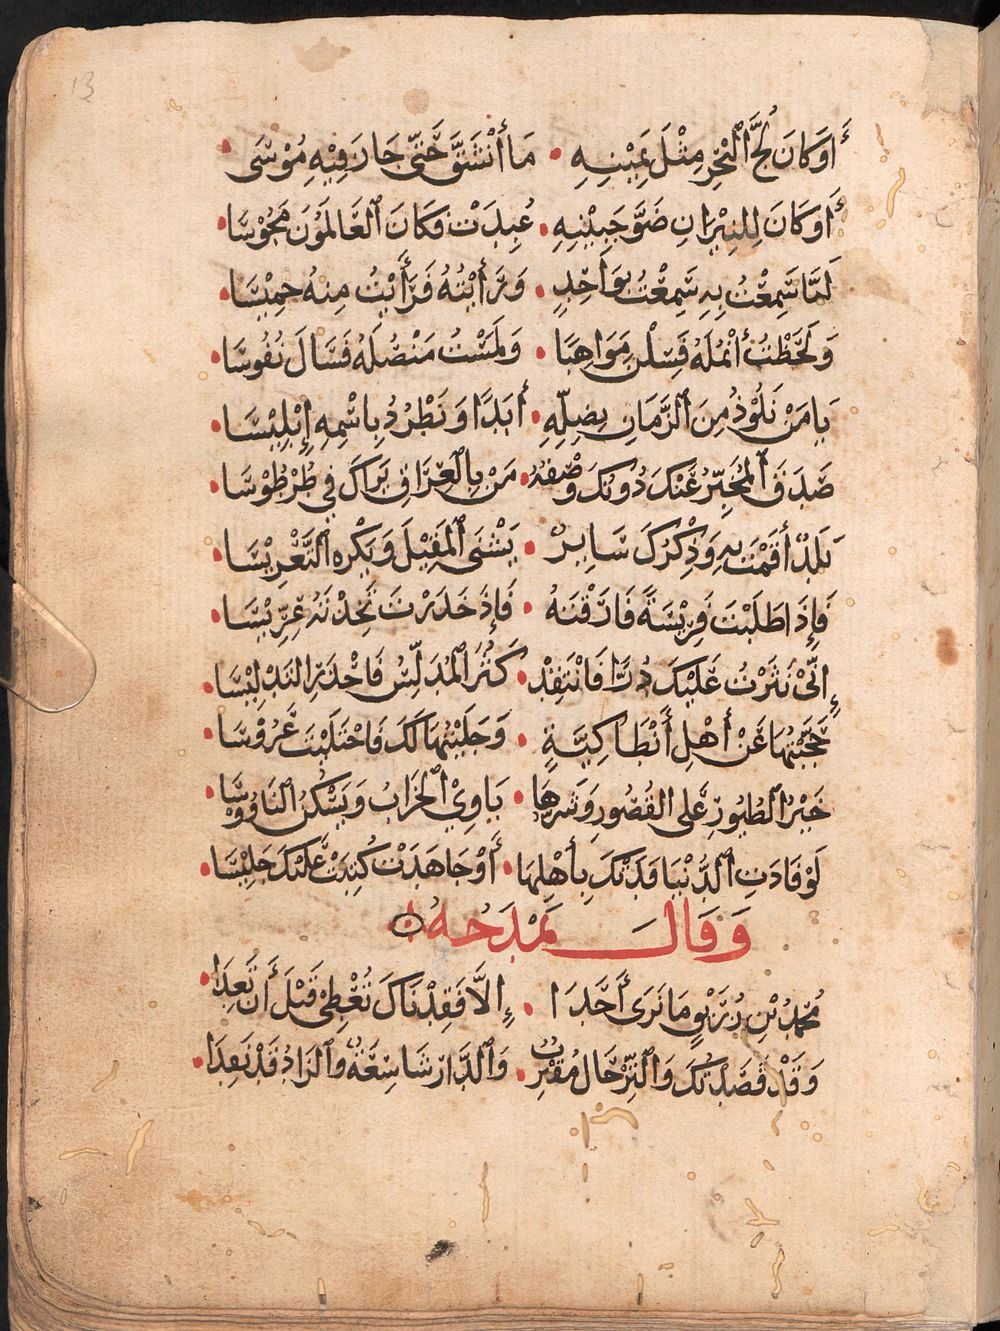 13
أَوْ كَانَ لُجُّ الْبَحْرِ مِثْلَ يَمِيْنِهِ • مَا أَنْشَقَّ حَتَّى جَازَ فِيْهِ مُوْسَى •
أَوْ كَانَ لِلنِيْرَانِ ضَوَّ جَبِيْنِهِ • عُبِدَتْ فَكَانَ الْعَالَمُوْنَ مَجُوْسَا •
لَمَّا سَمِعْتُ بِهِ سَمِعْتُ بِوَاحِدٍ • وَرَأَيْتُهُ فَرَأَيْتُ مِنْهُ خمِيْسَا •
وَلَحَظْتُ أَنْمُلَهُ فَسِلْنَ مَوَاهِبَا • وَلَمَسْتُ مَنْصُلَهُ فَسَالَ نُفُوسَا •
يَا مَنْ نَلُوْذُ مِنَ الزَّمَانِ بِظِلِّهِ • أَبَدًا وَنَطْرُدُ بِاسْمِهِ إِبْلِيْسَا •
صَدَقَ الْمُخَبِّرُ عَنْكَ دُونَكَ وَصْفُهُ • مَنْ بِالْعِرَاقِ يَرَاكَ فِي طُرْطُوْسَا •
بَلَدٌ أَقَمْتَ بِهِ وَذِكْرُكَ سَايِرٌ • يَشْنَى الْمَقِيْلَ وَيَكْرَه التَّعْرِيْسَا •
فَإِذَا طَلَبْتَ فَرِيْسَةً فَارَقْتَهُ • فَإِذَ خَدَرْتَ تَخِذْتَهُ عِرِّيْسَا •
إِنِّيْ نَثَرْتُ عَلَيْكَ دُرًّا فَانْتَقِدْ • كَثُرَ الْمُدَلِّسُ فَاحْذَرِ التَدْلِيْسَا •
حَجَّبْتُهَا عَنْ أَهْلِ أَنْطَاكِيَّةٍ • وَجَلَيْتُهَا لَكَ فَاجْتَلَيْتَ عَرُوْسَا •
خَيْرُ الطُّيُوْرِ عَلَى القُصُوْرِ وَشَرُّهَا • يَاوِيْ الْخَرَابَ وَيَسْكُنُ النَاوُوْسَا •
لَوْ فَادَتِ الدُّنْيَا فَدَتْكَ بِأَهْلِهَا • أَوْ جَاهَدَتْ كُتِبَتْ عَلَيْكَ حَبِيْسَا •
وَقَالَ يَمْدَحُهُ
مُحَمَّدُ بْنِ زُرَيْقٍ مَا نَرَى أَحَدَا • إِلاَّ فَقِدْنَاكَ تُعْطِي قَبْلَ أَن تَعِدَا •
وَقَدْ قَصَدْتُكَ وَالتَّرْحَالُ مُقْتَرِبٌ • وَالدَّارُ شَاسِعَةٌ وَالزَادُ قَدْ نَفِدَا •